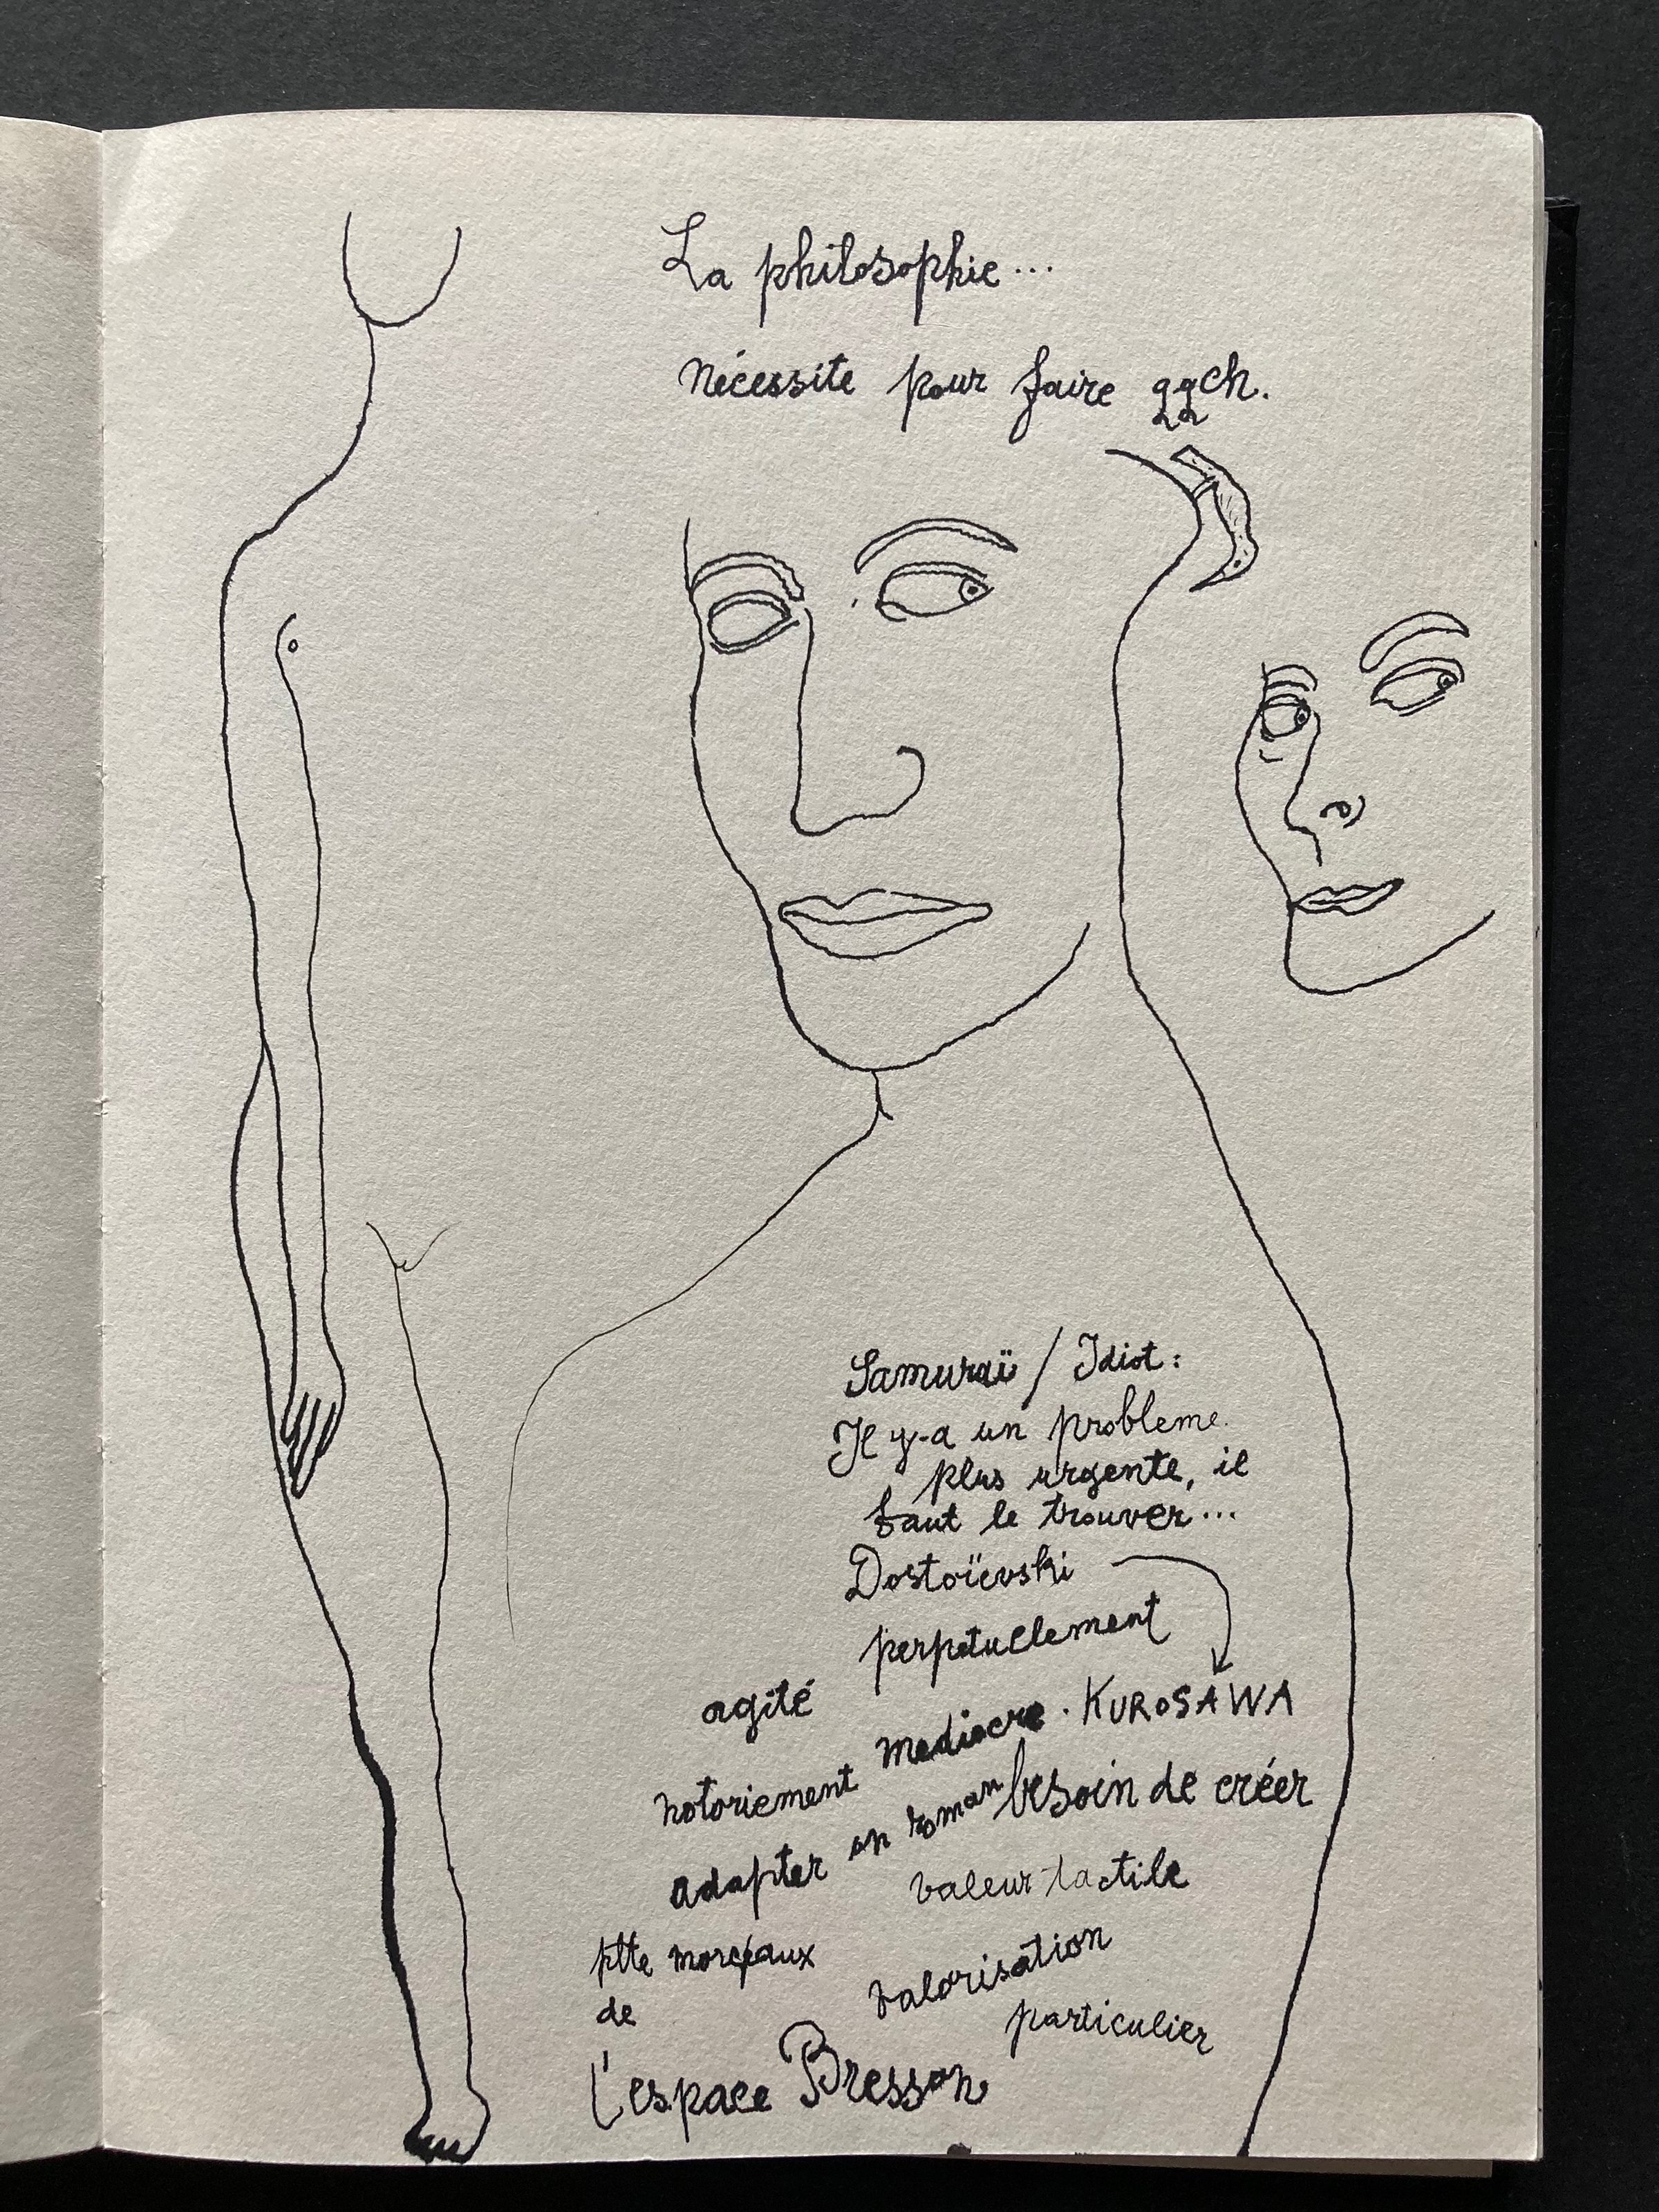 La philosophie...
nécessite pour faire qqch.
Samuraï / Idiot :
Il y-a un probleme
plus urgente, il
faut le trouver...
Dostoïevski
perpetuelement
agité
mediocre. KUROSAWA
notoriement
besoin de créer
adapter un roman
valeur tactile
ptte morceaux
valorisation
de
particulier
l'espace Bresson